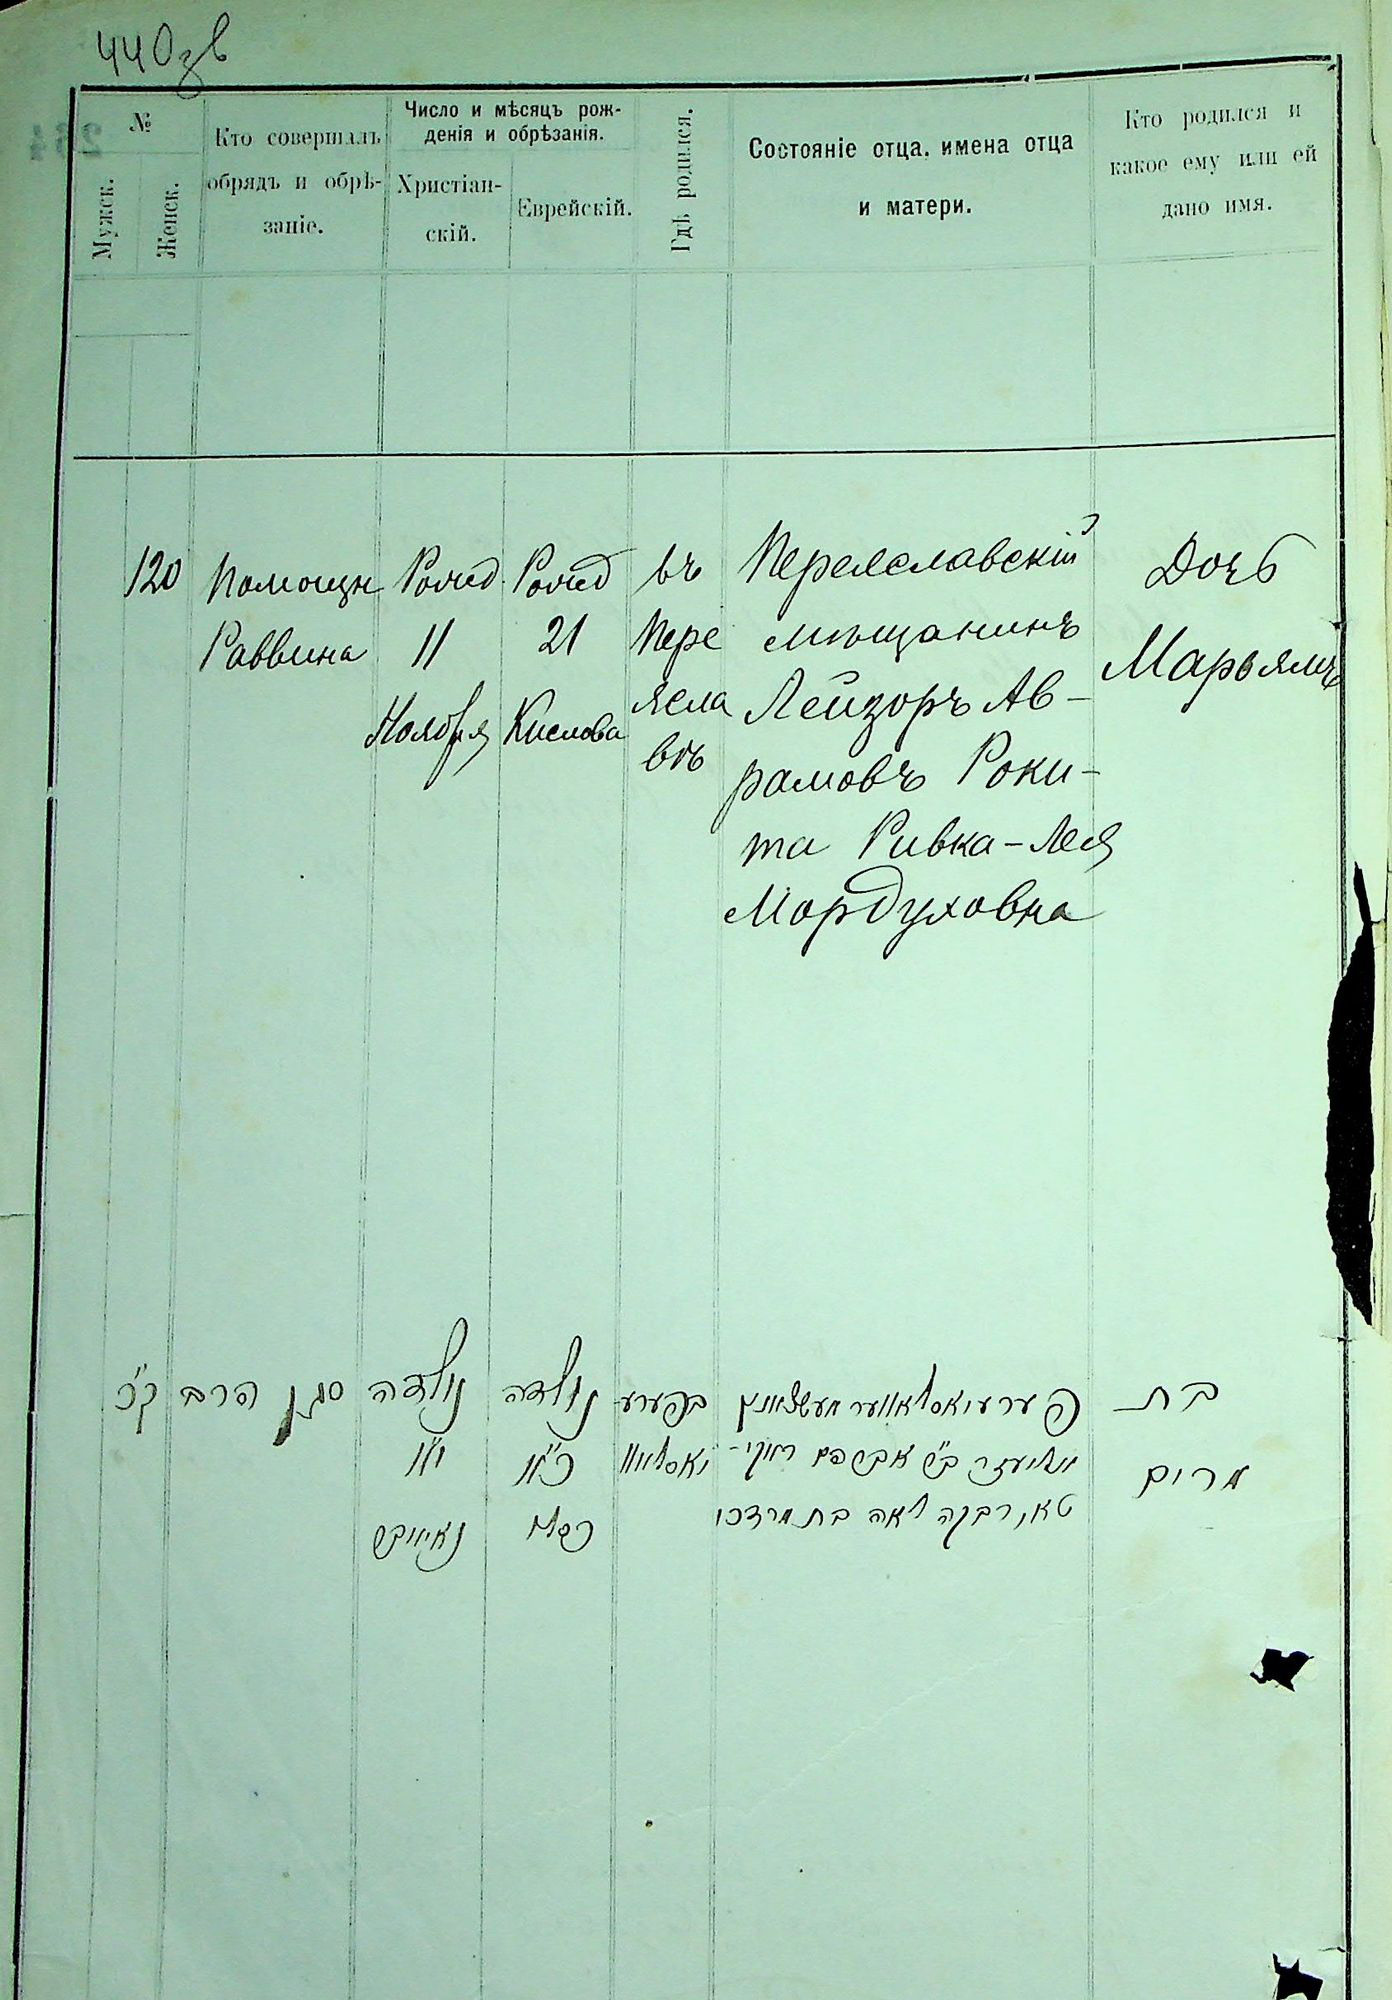 440 зв
№
Мужск.
Женск.
Кто совершалъ
обрядъ и обрѣ-
заніе.
Число и мѣсяцъ рож-
денія и обрѣзанія.
Христіан-
скій.
Еврейскій.
Гдѣ родился.
Состояніе отца, имена отца
и матери.
Кто родился и
какое ему или ей
дано имя.
120
Помощн
Раввина
Рожд
11
Ноября
Рожд
21
Кислова
въ
Пере
ясла
вѣ
Переяславскій
мѣщанинъ
Лейзоръ Ав-
рамовъ Роки-
та Ривка-Лея
Мордуховна
Дочь
Марьямъ
ק״כ
סגן הרב
נולדה
י״א
נאיאבר
נולדה
כ״א
כסלו
בפערע
יאסלאוו
פערעיאסלאווער מעשצאנין
אליעזר ב״ר אברהם ראקי-
טא, רבקה לאה בת מרדכי
בת
מרים